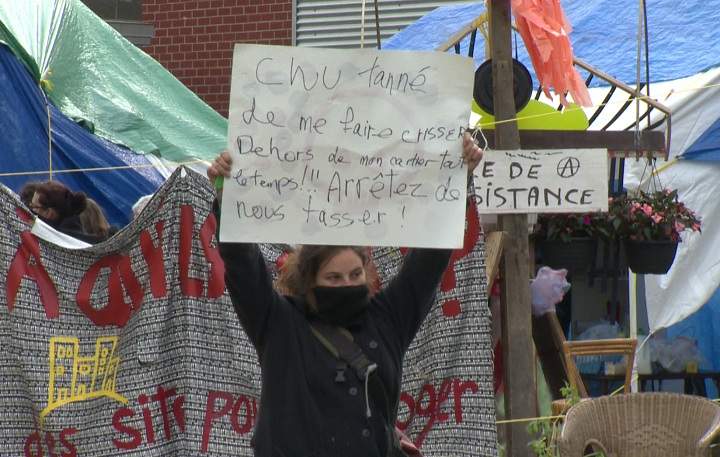 Chu tanné
de me faire crisser
Dehors de mon cartier tout
le temps!!! Arrêtez de
nous tasser!
E DE Ⓐ
SISTANCE
des sites pou oger